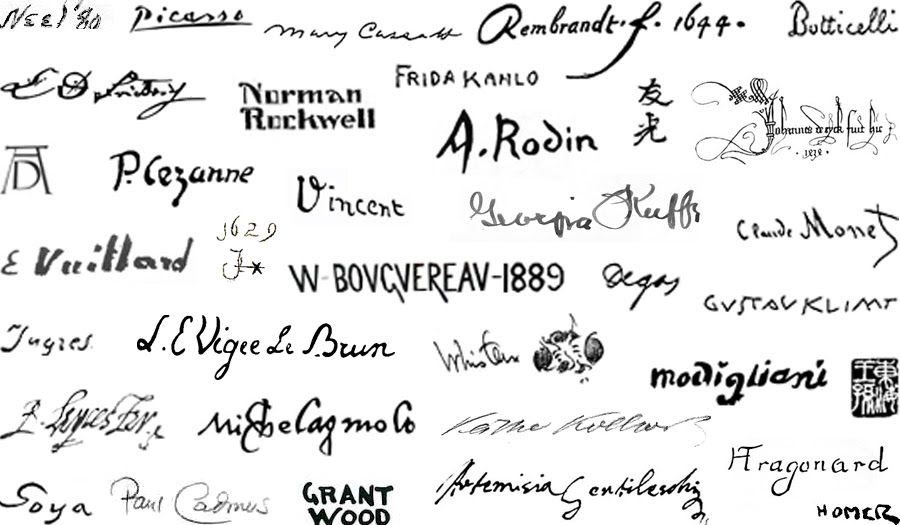 Neel '80
Picasso
Mary Cassatt
Rembrandt. f. 1644.
Botticelli
FRIDA KAHLO
Norman
Rockwell
A. Rodin
友
Johannes de eyck fuit hic
AD
P. Cezanne
Vincent
Georgia O'Keeffe
Claude Monet
E Vuillard
1629
J
W-BOVGVEREAV-1889
Degas
GVSTAV KLIMT
Ingres.
L. E Vigee Le Brun
Whistler
modigliani
Michelagniolo
Käthe Kollwitz
Fragonard
Goya
Paul Cadmus
GRANT
WOOD
Artemisia Gentileschi
HOMER